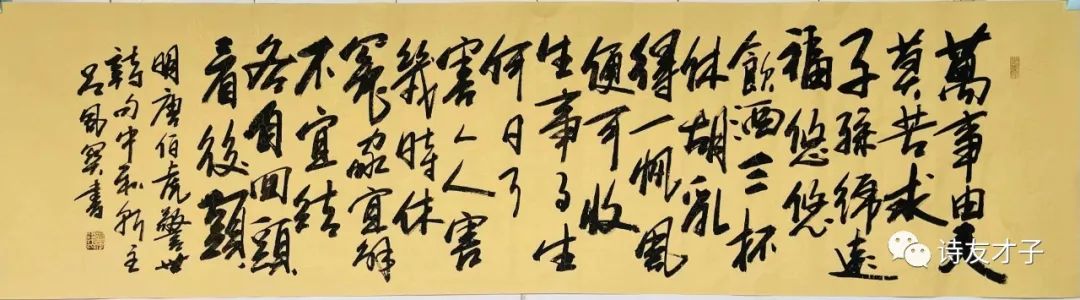 萬事由天
莫苦求
子孫綿遠
福悠悠
飲酒三杯
休胡亂
得一帆風
便可收
生事事生
何日了
害人人害
幾時休
冤家宜解
不宜結
各自回頭
看後頭
明唐伯虎警世
詩句中和軒主
吕書
诗友才子